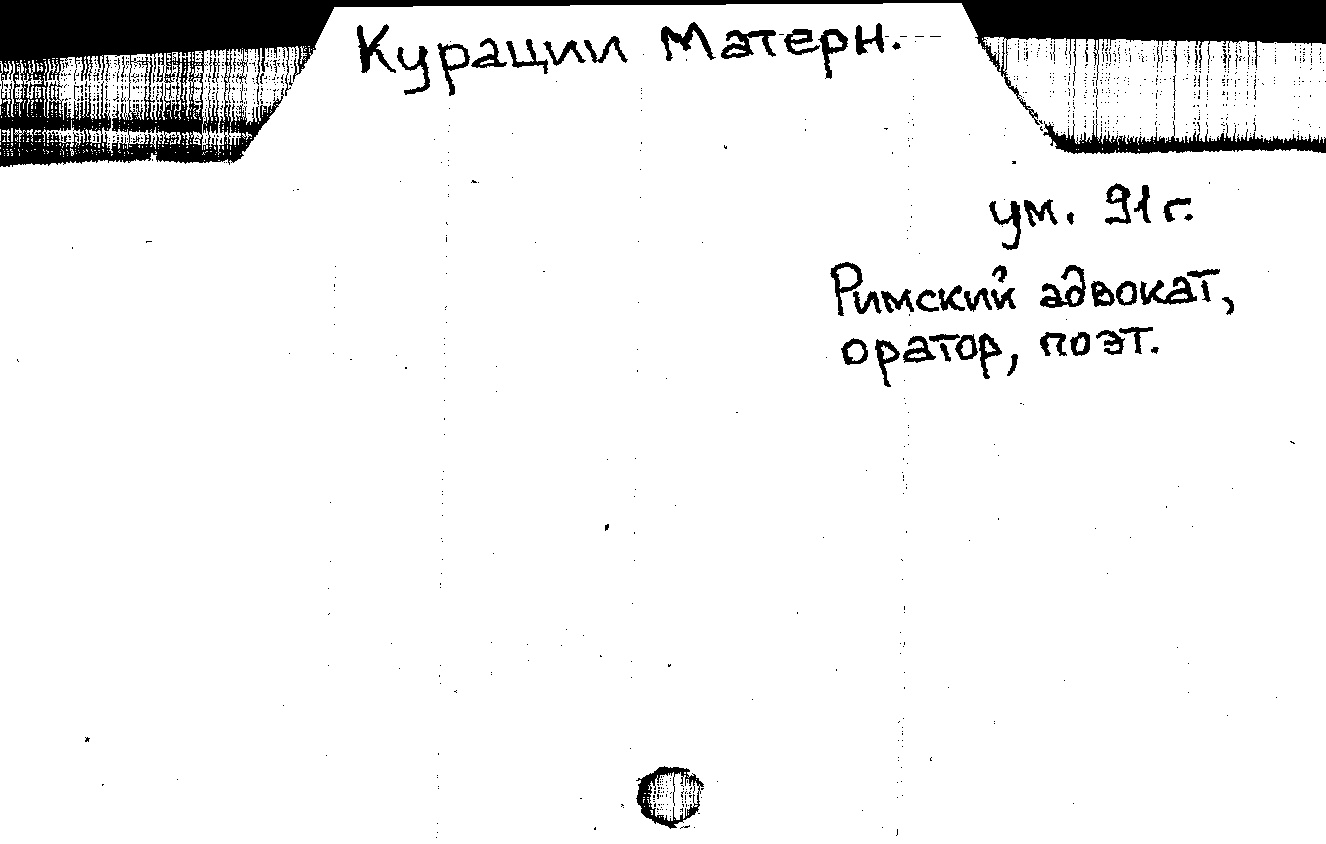 Курации Матерн.
ум. 91 г.
Римский адвокат,
оратор, поэт.